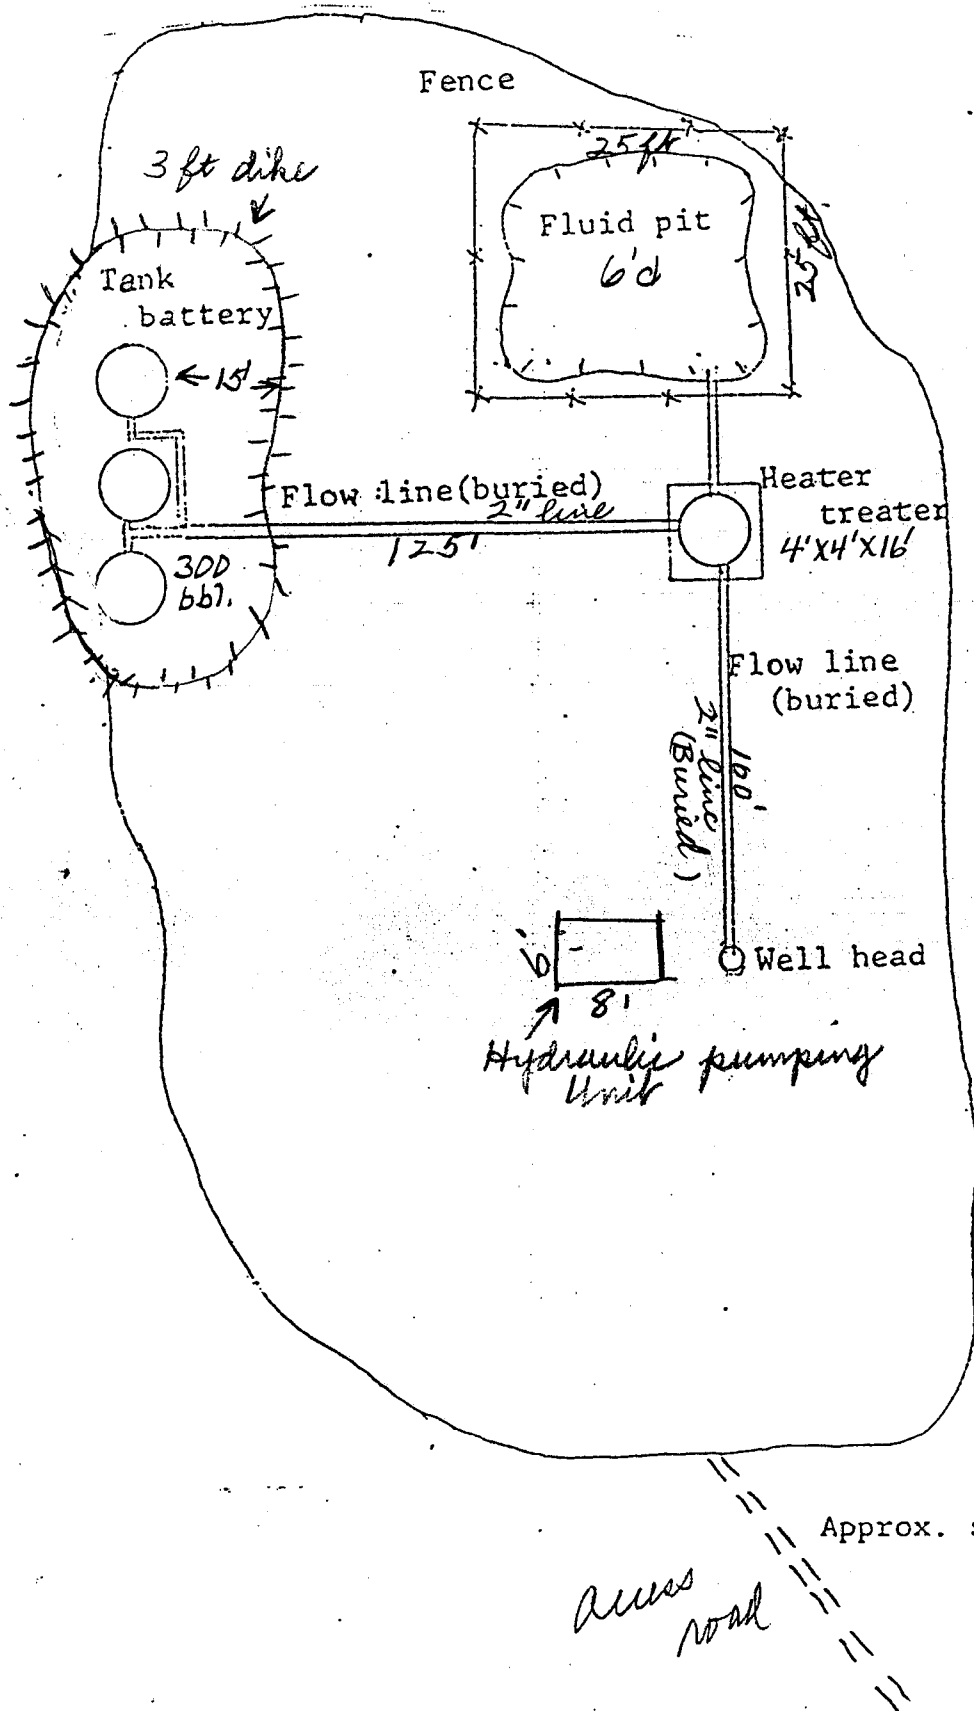 Fence
3 ft dike
25 ft
Fluid pit
6'd
25 ft.
Tank
battery
←15'→
Flow line(buried)
2" line
125'
Heater
treater
4'X4'X16'
300
bbl.
Flow line
(buried)
160'
2" line
(Buried)
6'
8'
Well head
Hydraulic pumping
Unit
Approx.
access
road